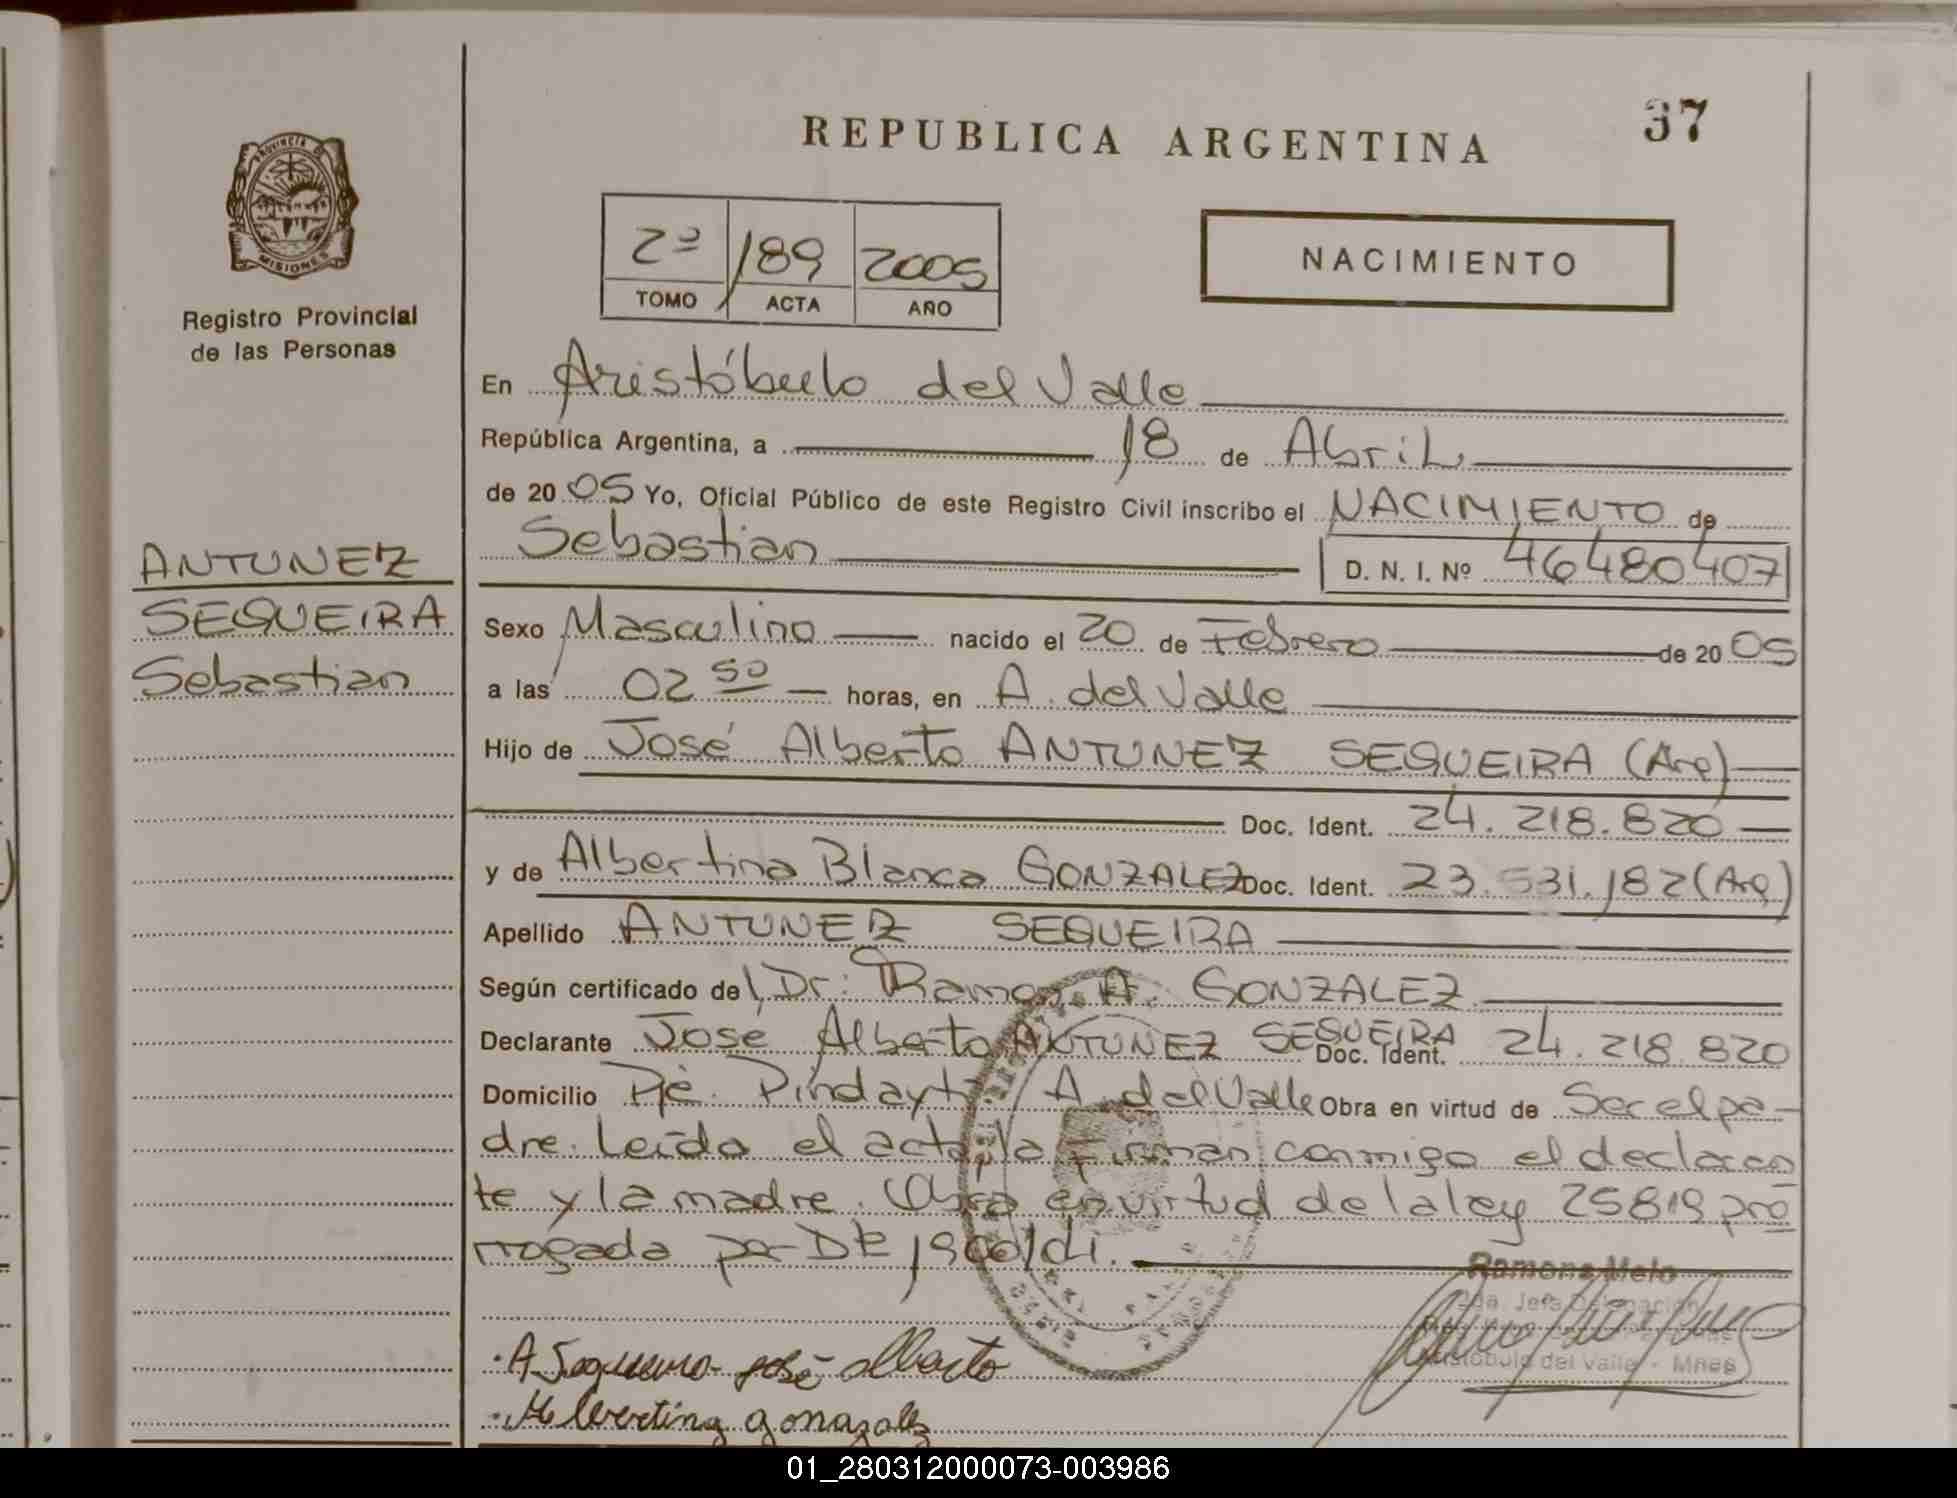 37
REPUBLICA ARGENTINA
PROVINCIA DE
MISIONES
Registro Provincial
de las Personas
2º 189 2005
TOMO ACTA AÑO
NACIMIENTO
En Aristóbulo del Valle
República Argentina, a 18 de Abril
de 20 05 Yo, Oficial Público de este Registro Civil inscribo el NACIMIENTO de
Sebastian D. N. I. Nº 46480407
ANTUNEZ
SEQUEIRA
Sebastian
Sexo Masculino nacido el 20 de Febrero de 20 05
a las 02 50 horas, en A. del Valle
Hijo de José Alberto ANTUNEZ SEQUEIRA (Arg)
Doc. Ident. 24.218.820
y de Albertina Blanca GONZALEZ Doc. Ident. 23.531.182 (Arg)
Apellido ANTUNEZ SEQUEIRA
Según certificado del Dr: Ramon A. GONZALEZ
Declarante José Alberto ANTUNEZ SEQUEIRA Doc. Ident. 24.218.820
Domicilio Pje. Pindayti A. del Valle Obra en virtud de Ser el pa-
dre. Leída el acta la firman conmigo el declaran
te y la madre. Obra en virtud de la ley 25819 pro
rrogada por
Ramona Melo
Jefa Delegación
Aristóbulo del Valle - Mnes
A Sequeira José Alberto
Alvertina gonzalez
01_280312000073-003986